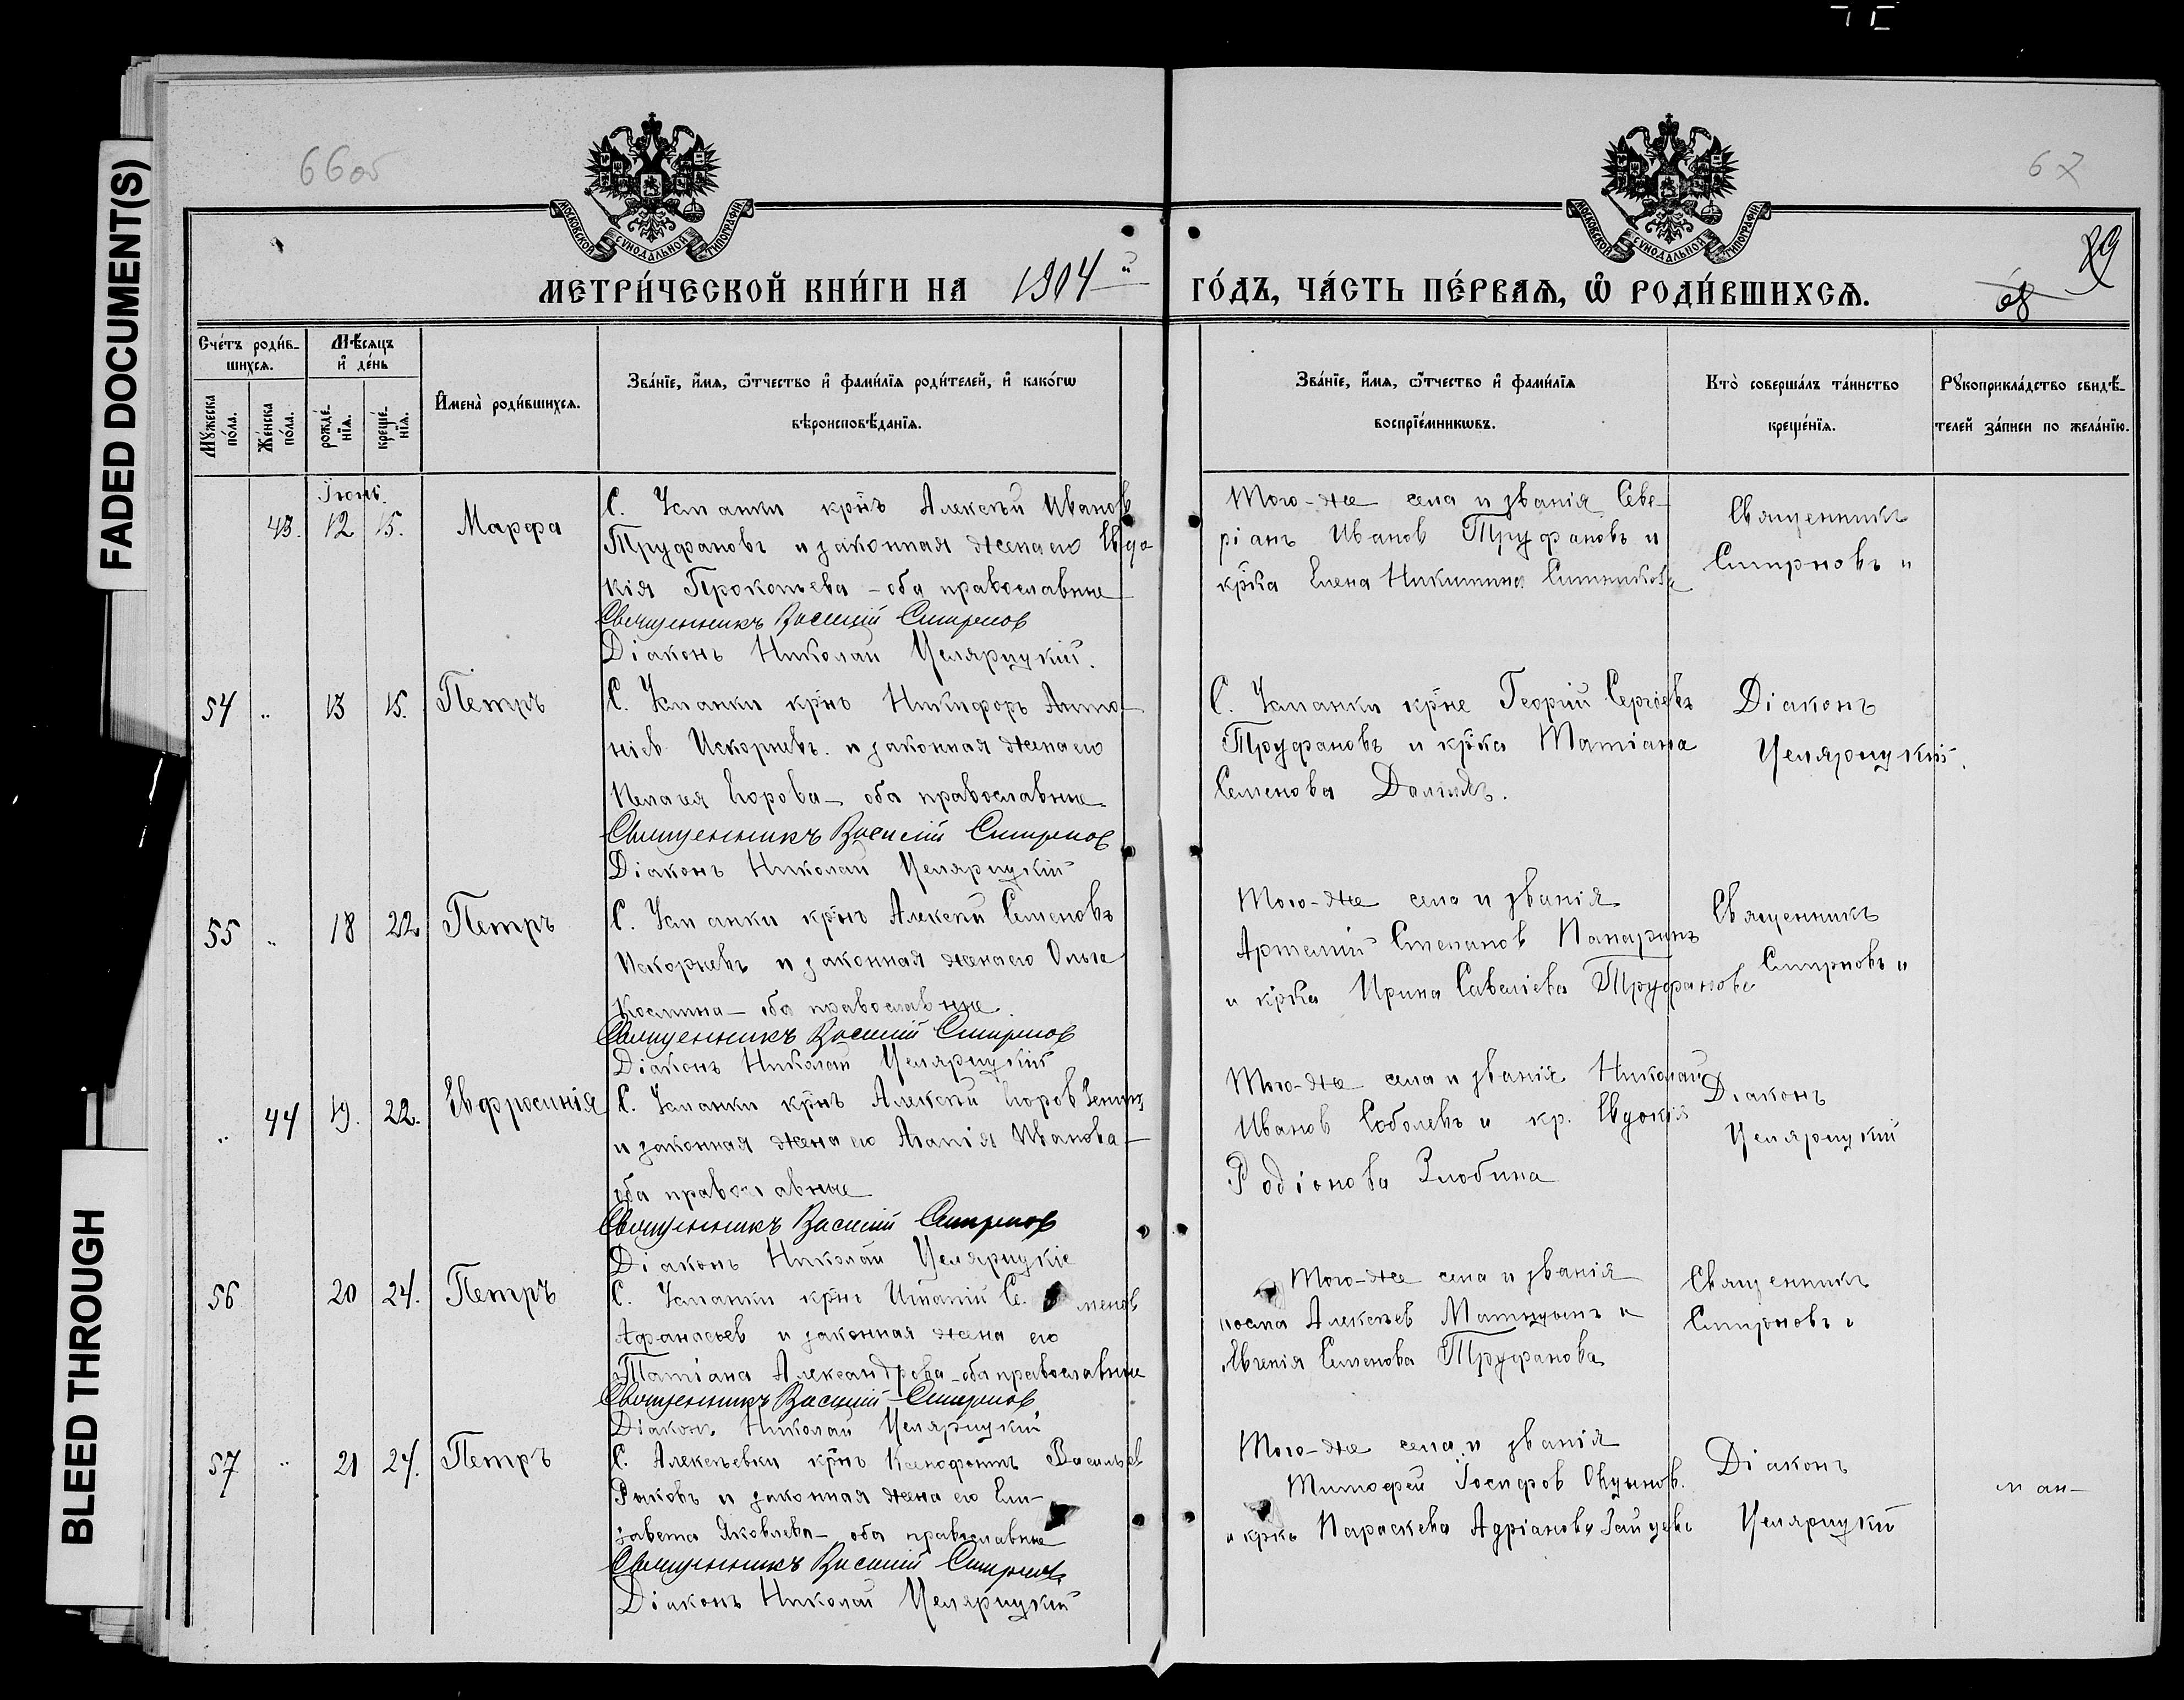 FADED DOCUMENT(S)
BLEED THROUGH
66об
67
МОСКОВСКОЙ СУНОДАЛЬНОЙ ТИПОГРАФІИ
МОСКОВСКОЙ СУНОДАЛЬНОЙ ТИПОГРАФІИ
МЕТРИ́ЧЕСКОЙ КНИ́ГИ НА 1904й ГО́ДЪ, ЧА́СТЬ ПЕ́РВАѦ, Ѿ РОДИ́ВШИХСѦ.
68
89
Сче́тъ роди́в-
шихсѧ.
Мꙋжеска по́ла.
Же́нска по́ла.
Мѣ́сѧцъ
и҆ де́нь
рожде́-
нїѧ.
креще́-
нїѧ.
И҆мена̀ роди́вшихсѧ.
Зва́нїе, и҆́мѧ, ѻ҆́тчество и҆ фами́лїѧ роди́телей, и҆ како́гѡ
вѣроисповѣ́данїѧ.
Зва́нїе, и҆́мѧ, ѻ҆́тчество и҆ фами́лїѧ
воспрїе́мникѡвъ.
Кто̀ соверша́лъ та́инство
креще́нїѧ.
Рꙋкоприкла́дство свидѣ́-
телей за́писи по жела́нїю.
Іюнь.
43. 12 15. Марфа
С. Усманки крнъ Алексѣй Иванов
Труфановъ и законная жена его Евдо
кія Прокопьева - оба православные
Священникъ Василій Смирнов
Діаконъ Николай Целярицкій.
Того-же села и званія Севе-
ріанъ Иванов Труфановъ и
крка Елена Никитина Ситникова
Священникъ
Смирновъ "
54 " 13 15. Петръ
С. Усманки крнъ Никифоръ Анто-
ніев Искорневъ и законная жена его
Пелагея Егорова - оба православные
Священникъ Василій Смирнов
Діаконъ Николай Целярицкій
С. Усманки крне Георгій Сергіевъ
Труфановъ и крка Татіана
Семенова
Діаконъ
Целярицкій.
55 " 18 22 Петръ
С. Усманки крнъ Алексѣй Семеновъ
Искорневъ и законная жена его Ольга
Космина - оба православные.
Священникъ Василій Смирнов
Діаконъ Николай Целярицкій
Того-же села и званія
Артемій Степанов Панаринъ
и крка Ирина Савеліева Труфанова
Священникъ
Смирновъ "
" 44 19. 22. Евфросинія
С. Усманки крнъ Алексѣй Егоров Зенинъ
и законная жена его Агапія Иванова -
оба православные
Священникъ Василій Смирнов
Діаконъ Николай Целярицкіе
Того-же села и званія Николай
Иванов Соболевъ и кр. Евдокія
Родіонова Злобина
Діаконъ
Целярицкій
56 20 24. Петръ
С. Усманки крнъ Игнатій Се. менов
Афанасьев и законная жена его
Татіана Александрова - оба православные
Священникъ Василій Смирнов
Діаконъ Николай Целярицкій
Того-же села и званія
Косма Алексѣев Матицынъ и
Евгенія Семенова Труфанова
Священникъ
Смирновъ "
57 " 21 24. Петръ
С. Алексѣевки крнъ Ксенофонтъ Васильев
Рыковъ и законная жена его Ели-
завета Яковлева - оба православные
Священникъ Василій Смирнов
Діаконъ Николай Целярицкій
Того-же села и званія
Тимофей Іосифов
и крка Параскева Адріанова Зайцева
Діаконъ
Целярицкій